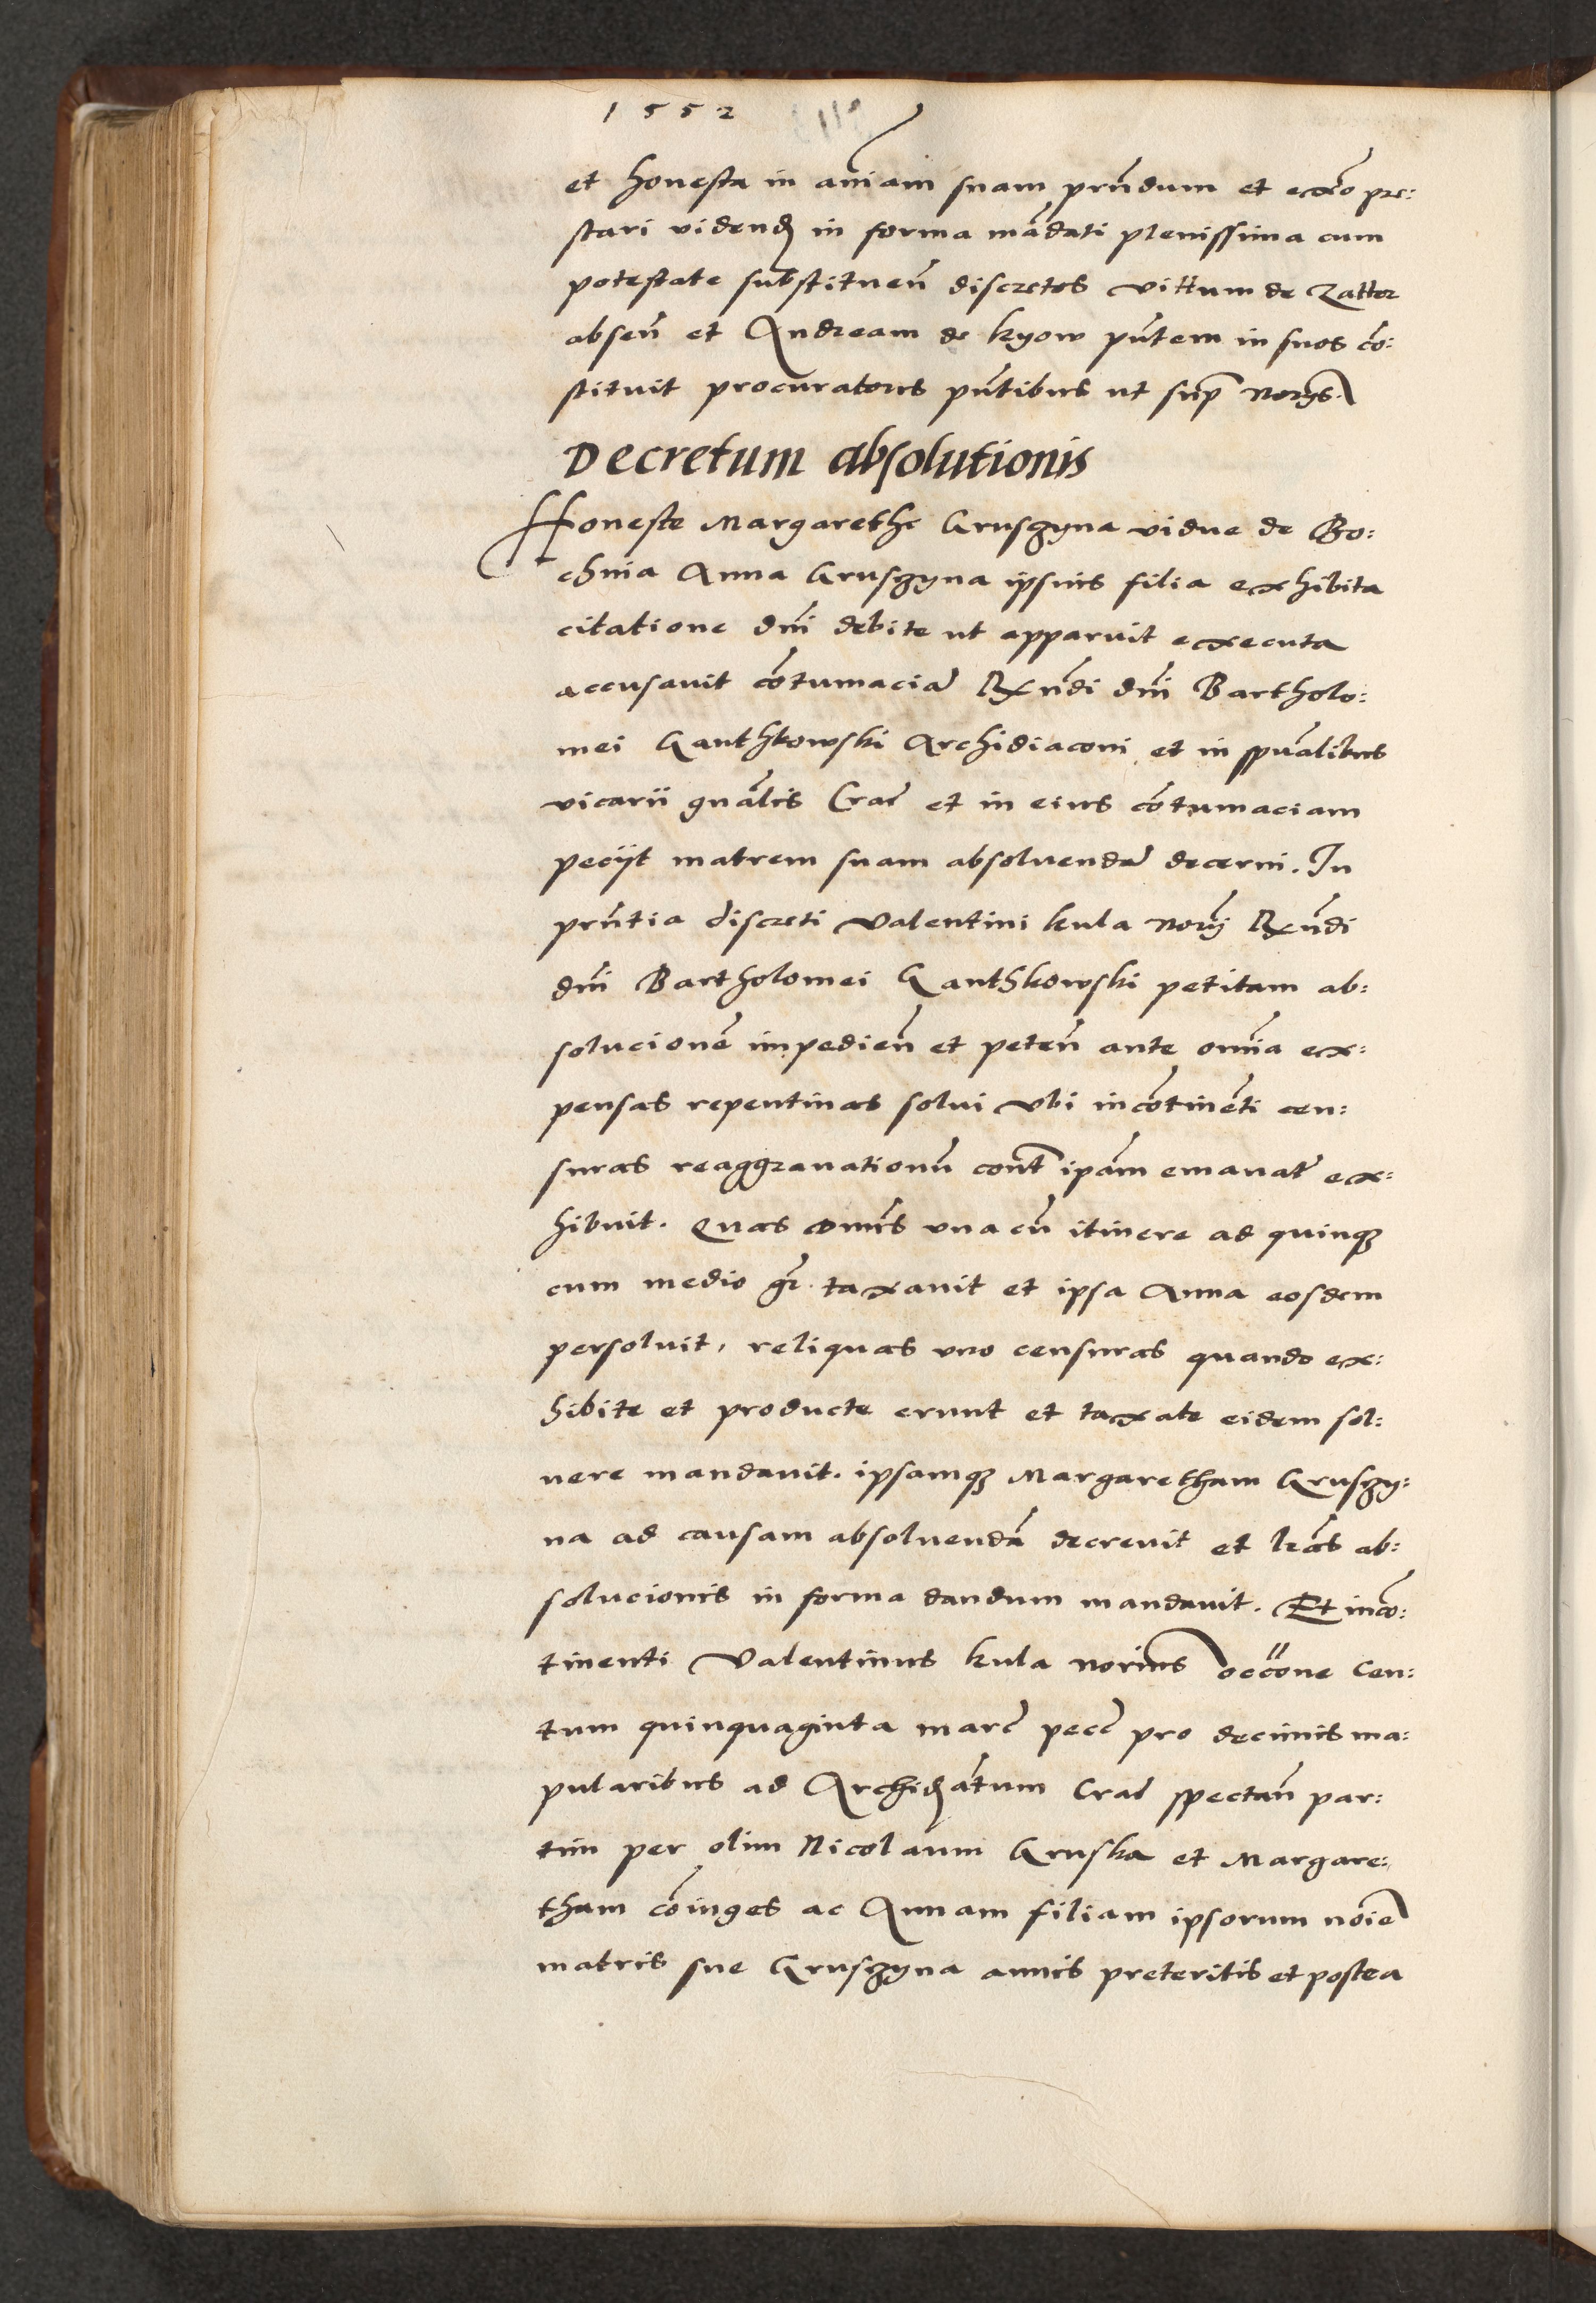 1552
et honesta in aniam suam prndum et exno pre:
stari vidend in forma mandati plenissima cum
potestate substituen discretos vittum de Zator
absen et Andream de kyow pntem in suos co:
stituit procuratores pntibus ut sup norys
Decretum absolutionis
Honeste Margarethe Grusczyna vidue de Bo:
chnia Anna Grusczyna ipsius filia exhibita
citatione dni debite ut apparuit executa
accusavit contumacia Rndi dni Bartholo:
mei Ganthkowski Archidiaconi et in spualibus
vicarii gnalis Crac et in eius contumaciam
peciit matrem suam absoluenda decerni. In
prntia discreti Valentini kula nory Rndi
dni Bartholomei Ganthkowski petitam ab:
solucione impedien et peten ante omnia ex:
pensas repentinas solui vbi incontinenti cen:
suras reaggravationu cont ipam emanat ex:
hibuit. Quas omnes una cu itinere ad quinq
cum medio gr taxavit et ipsa Anna eosdem
persoluit, reliquas vero censuras quando ex:
hibite et producte erunt et taxate eidem sol:
vere mandavit. ipsamq Margaretham Grusczy:
na ad causam absoluenda decrevit et lras ab:
solucionis in forma dandum mandavit. Et inco:
tinenti Valentinus kula norius occone Cen:
tum quinquaginta marc pecc pro decimis ma:
pularibus ad Archidatum Crac spectan par:
tim per olim Nicolaum Gruska et Margare:
tham coiuges ac Annam filiam ipsorum noie
matris sue Grusczyna annis preteritis et postea